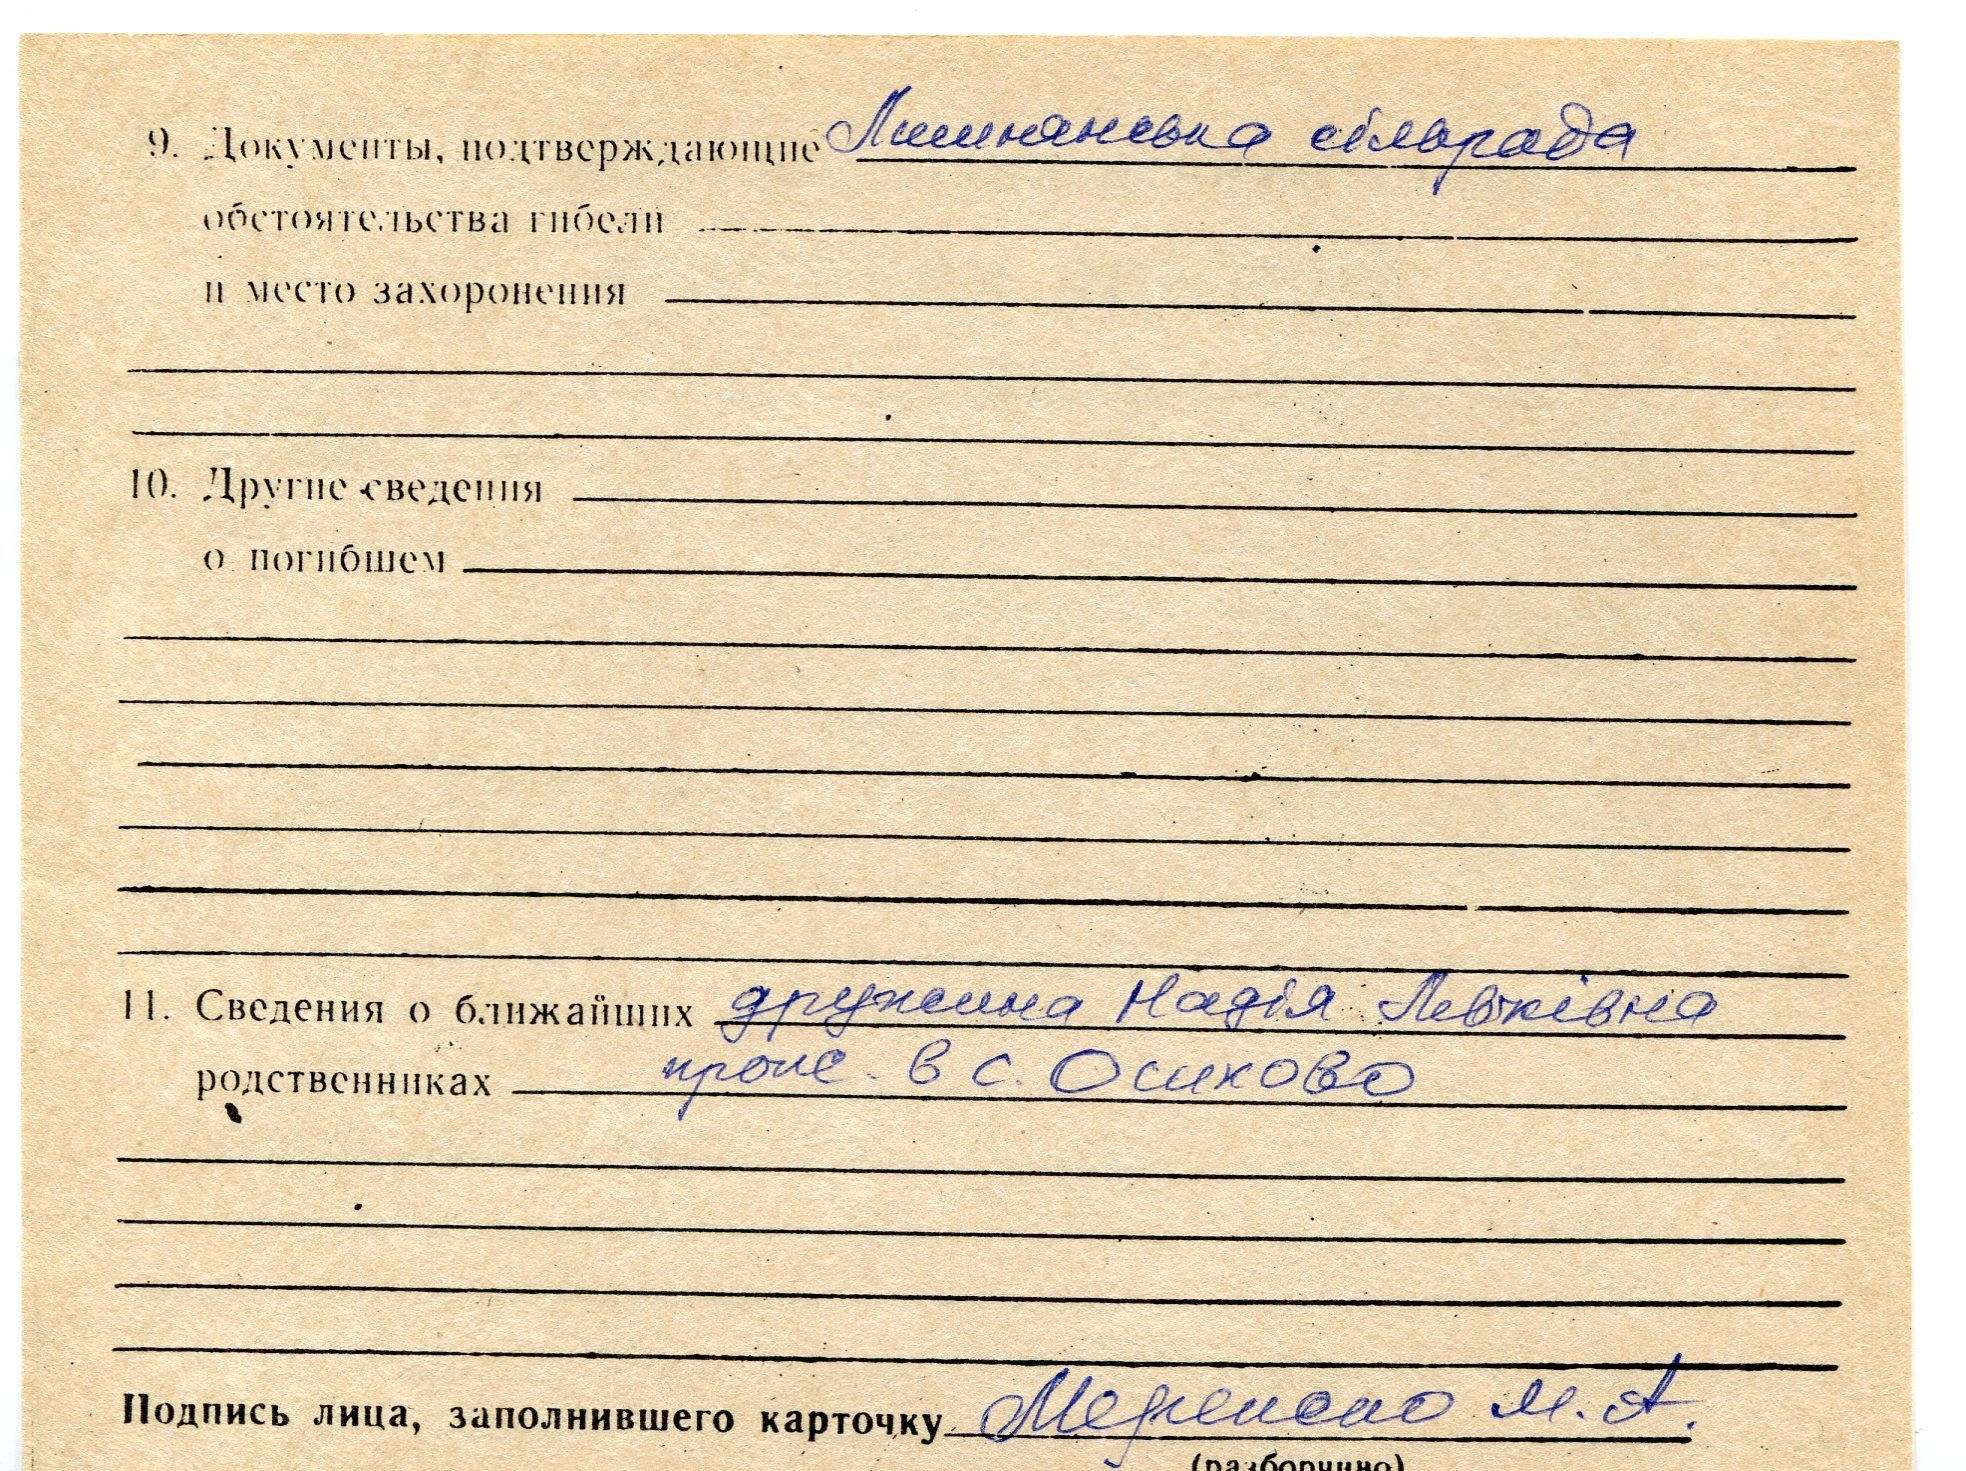 9. Документы, подтверждающие сільрада
обстоятельства гибели
и место захоронения
10. Другие сведения
о погибшем
11. Сведения о ближайших дружина Надія Левківна
родственниках прож. в с. Осиково
Подпись лица, заполнившего карточку М. А.
(разборчиво)